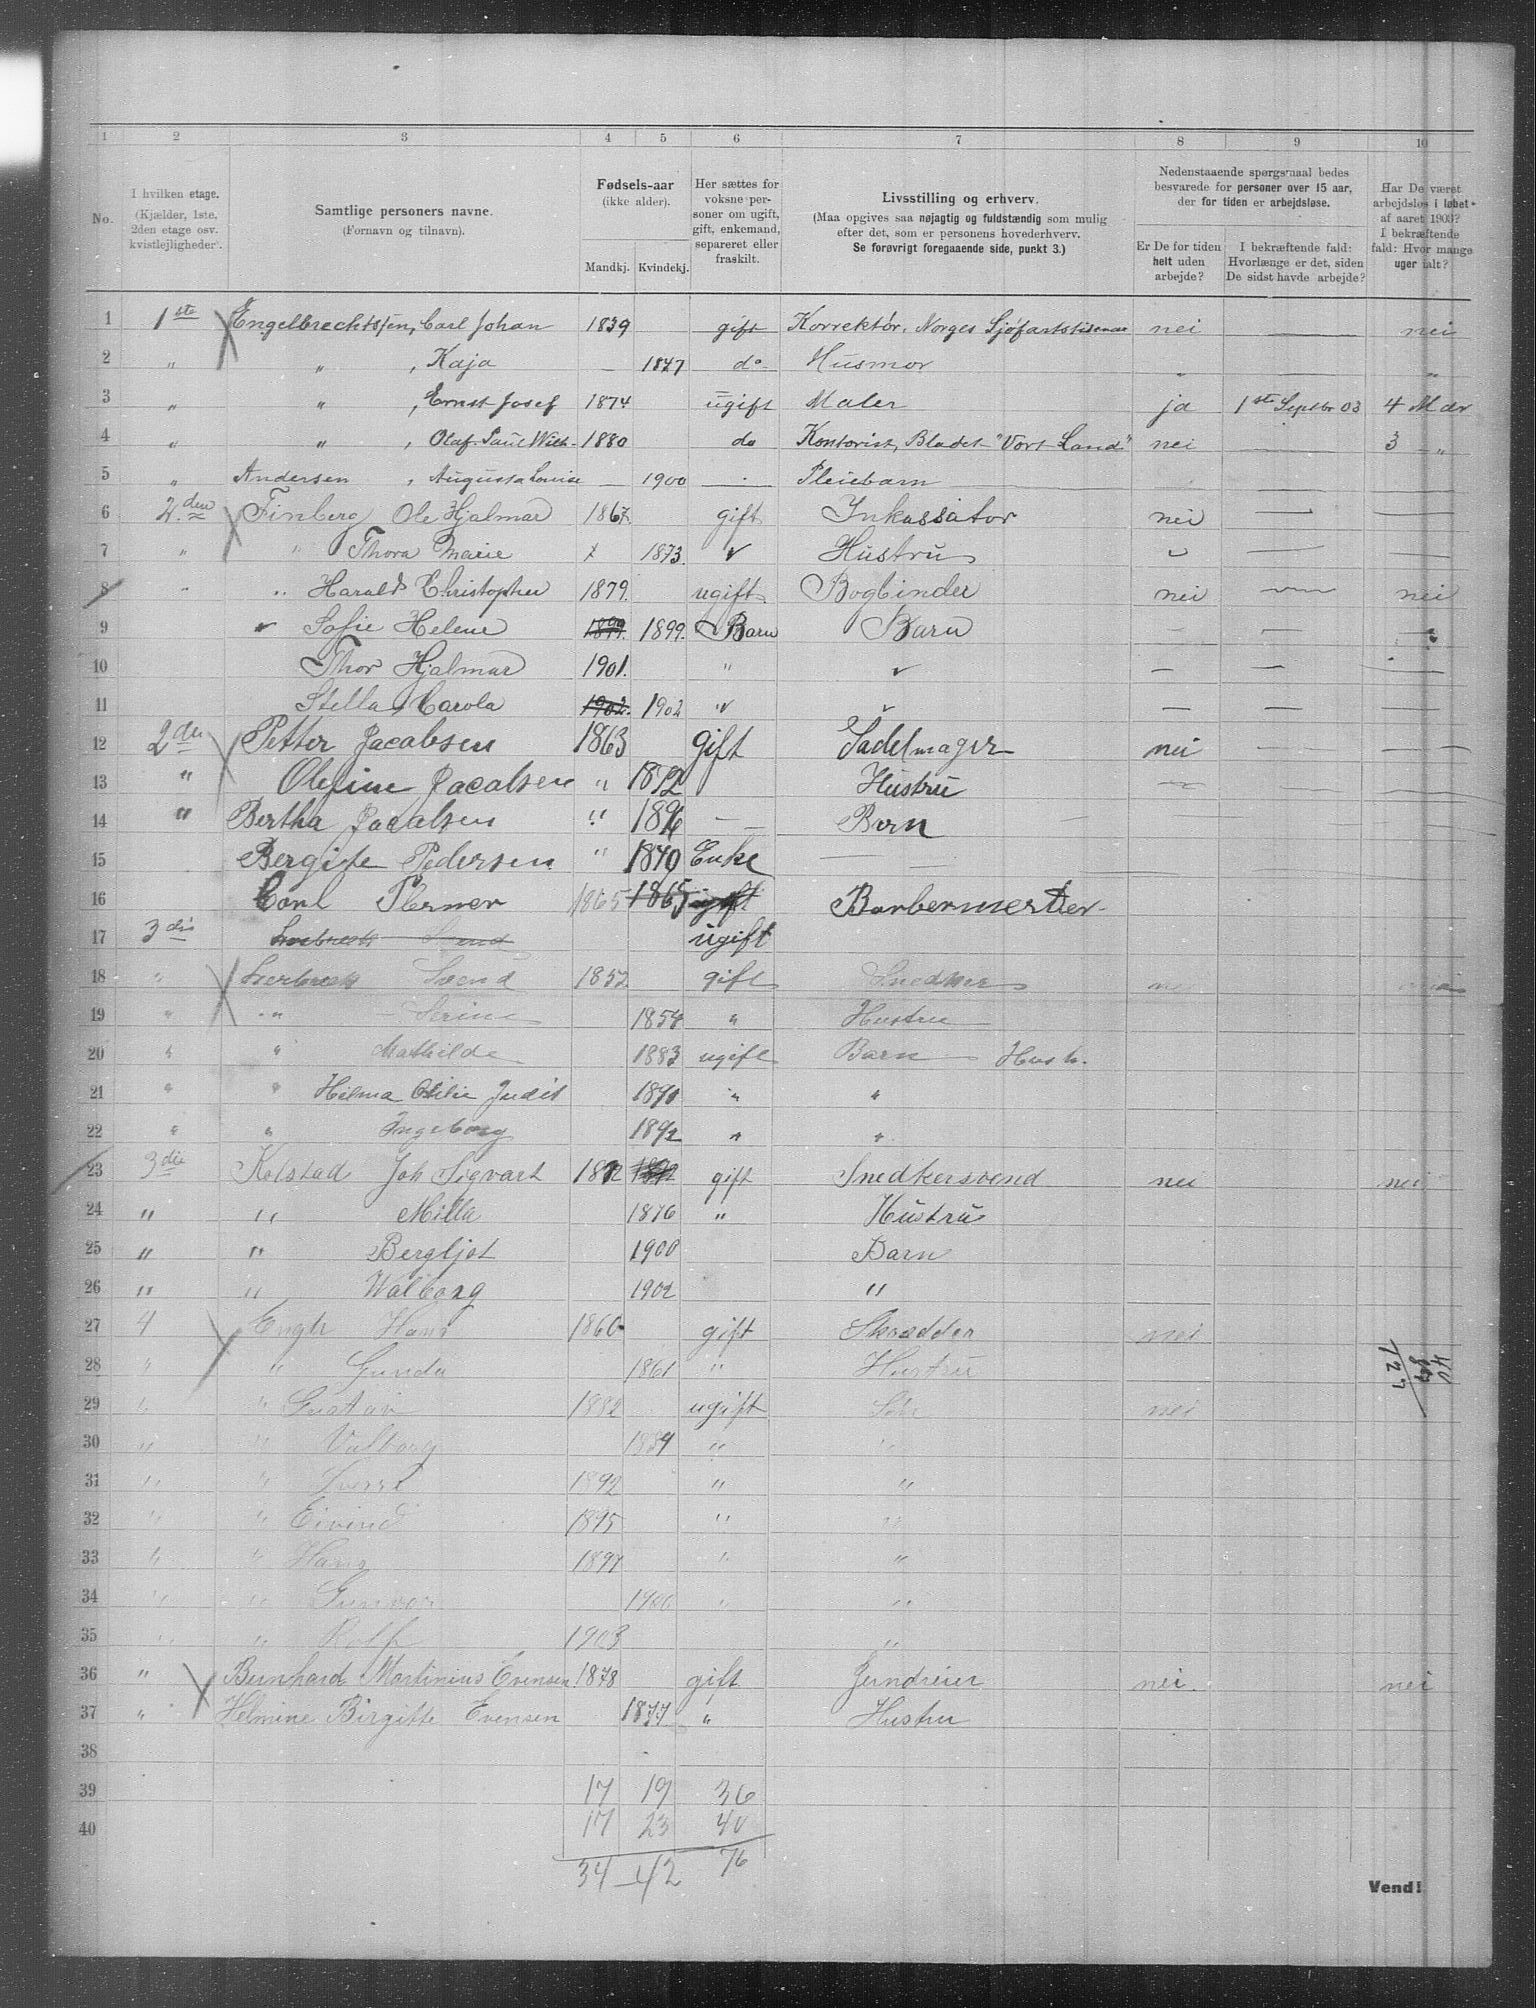 1 2 3 4 5 6 7 8 9 10
No.
I hvilken etage. (Kjælder, 1ste, 2den etage osv. kvistlejligheder).
Samtlige personers navne. (Fornavn og tilnavn).
Fødsels-aar (ikke alder).
Mandkj. Kvindekj.
Her sættes for voksne personer om ugift, gift, enkemand, separeret eller fraskilt.
Livsstilling og erhverv.
(Maa opgives saa nøjagtig og fuldstændig som mulig efter det, som er personens hovederhverv.
Se forøvrigt foregaaende side, punkt 3.)
Nedenstaaende spørgsmaal bedes besvarede for personer over 15 aar, der for tiden er arbejdsløse.
Er De for tiden helt uden arbejde?
I bekræftende fald: Hvorlænge er det, siden De sidst havde arbejde?
Har De været arbejdsløs i løbet af aaret 1903? I bekræftende fald: Hvor mange uger ialt?
1 1ste Engelbrechtsen, Carl Johan 1839 gift Korrektör, Norges Sjöfartstidende nei — nei
2 " " , Kaja — 1847 do Husmor " "
3 " " , Ernst Josef 1874 ugift Maler ja 1ste Septbr 03 4 Mdr
4 " " , Olaf Paul Wilh. 1880 do Kontorist, Bladet "Vort Land" nei — 3 "
5 " Andersen , Augusta Lovise — 1900 — Pleiebarn
6 2.den Finberg Ole Hjalmar 1867 gift Inkassator nei — —
7 " " Thora Marie 1873 Hustru — —
8 " " Harald Christopher 1879 ugift Bogbinder nei nei
9 Sofie Helene 1899 1899 Barn Barn — —
10 Thor Hjalmar 1901 " — — —
11 Stella Carola 1902 1902 — — —
12 2den Petter Jacobsen 1863 gift Sadelmager nei
13 " Olefine Jacobsen " 1872 Hustru
14 " Bertha Jacobsen " 1896 — Barn
15 Bergite Pedersen " 1840 Enke
16 Carl Werner 1865 1865 ugift Barbermester
17 3die ugift
18 " Svend 1852 gift Snedker
19 " " 1854 " Hustru
20 " " Mathilde 1883 ugift Barn Hush.
21 " " Hilma Otilie Judit 1890 " "
22 " " Ingeborg 1892 " "
23 3die Kolstad Joh Sigvart 1872 gift Snedkersvend nei nei
24 " " Milla 1876 " Hustru
25 " " Bergljot 1900 Barn
26 " " Walborg 1902 "
27 4 Engh Hans 1860 gift Skrædder nei
28 " " Gunda 1861 " Hustru
29 " " Gustav 1882 ugift nei
30 " " Valborg 1889 " "
31 " " Sverre 1892 " "
32 " " Eivind 1895 " "
33 " " Hans 1897 " "
34 " " Gunvor 1900 " "
35 " " Rolf 1903 "
36 " Bernhard Martinius Evensen 1878 gift nei nei
37 " Helmine Birgitte Evensen 1877 " Hustru
38
39 17 19 36
40 17 23 40
34 42 76
Vend!